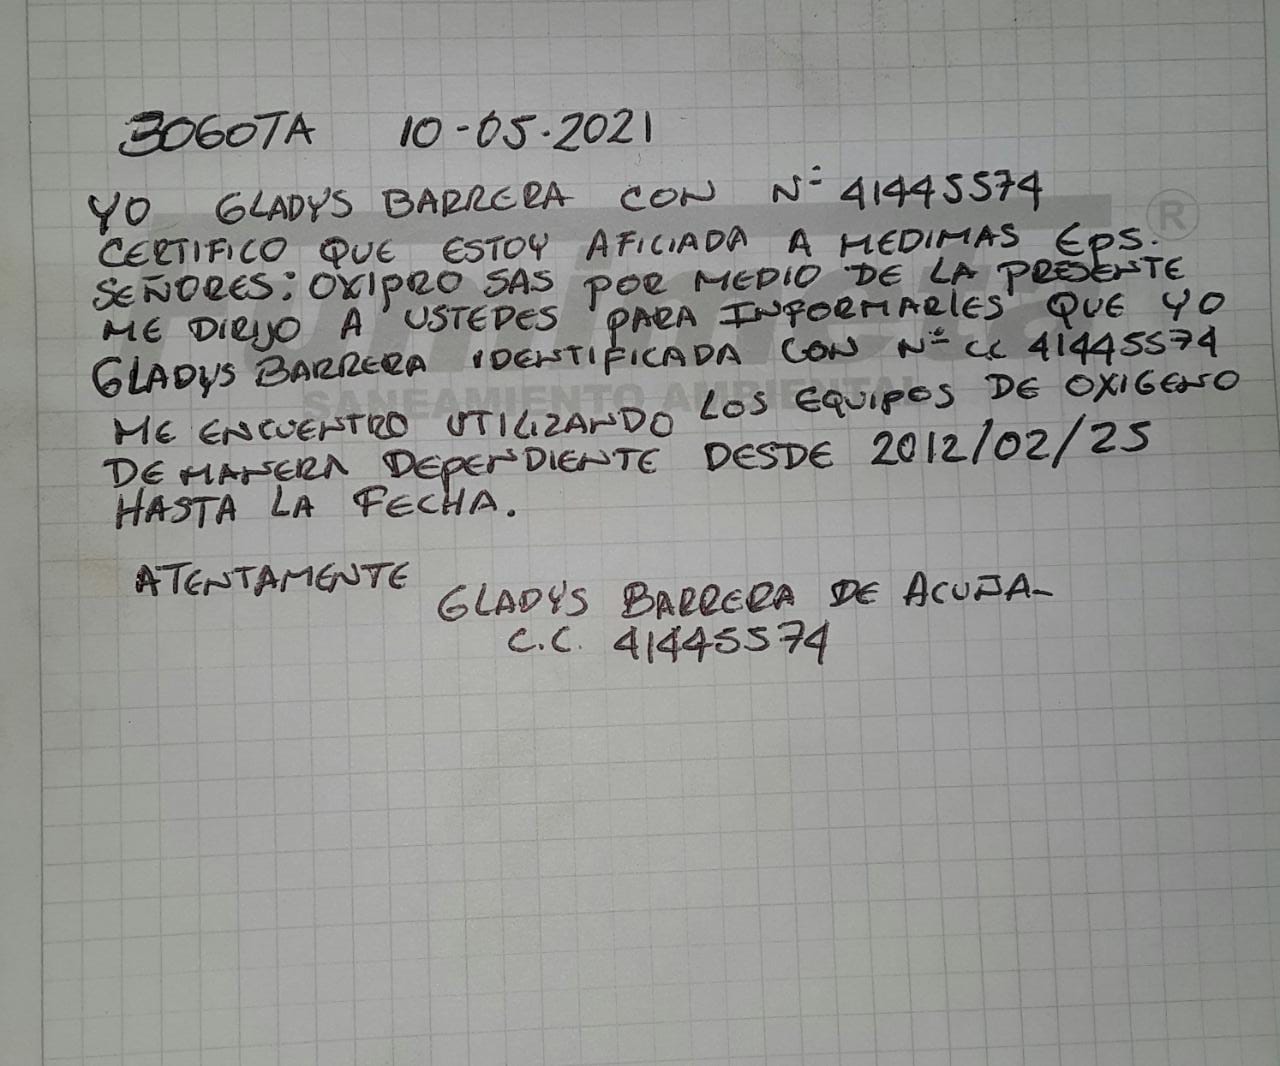 BOGOTA 10-05-2021
YO GLADYS BARRERA CON Nº 41445574
CERTIFICO QUE ESTOY AFICIADA A MEDIMAS EPS.
SEÑORES: OXIPRO SAS POR MEDIO DE LA PRESENTE
ME DIRIJO A USTEDES PARA INFORMARLES QUE YO
GLADYS BARRERA IDENTIFICADA CON Nº CC 41445574
ME ENCUENTRO UTILIZANDO LOS EQUIPOS DE OXIGENO
DE MANERA DEPENDIENTE DESDE 2012/02/25
HASTA LA FECHA.
ATENTAMENTE
GLADYS BARRERA DE ACUÑA
C.C. 41445574
®
SANEAMIENTO AMBIENTAL